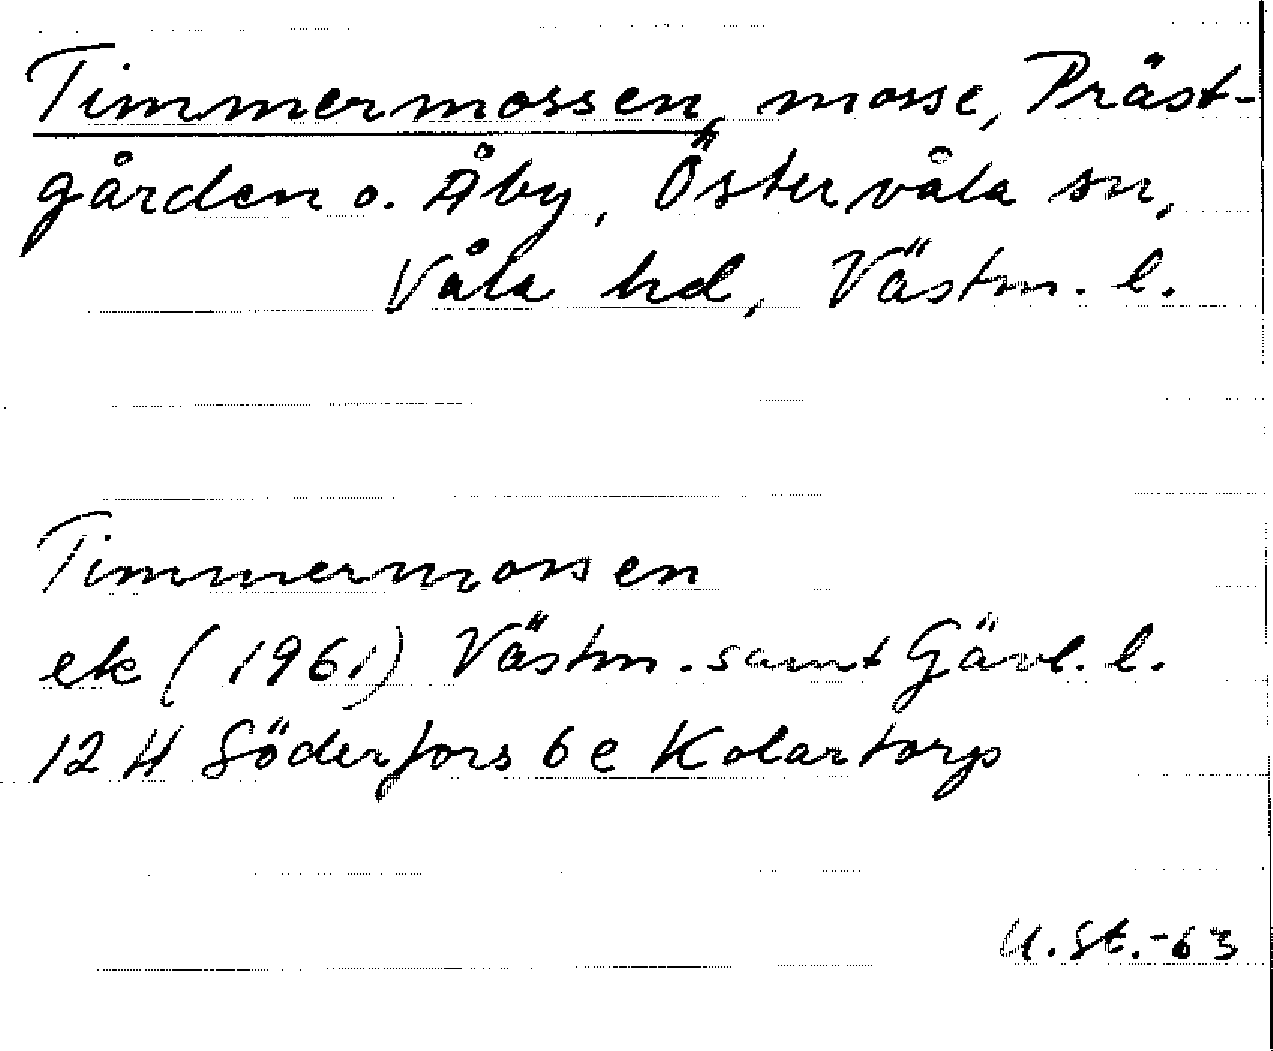 Timmermossen, mosse, Präst-
gården o. Åby, Östervåla sn,
Våla hd, Västm. l.
Timmermossen
ek (1961) Västm. samt Gävl. l.
12 H Söderfors 6 e Kolartorp
U. St. -63